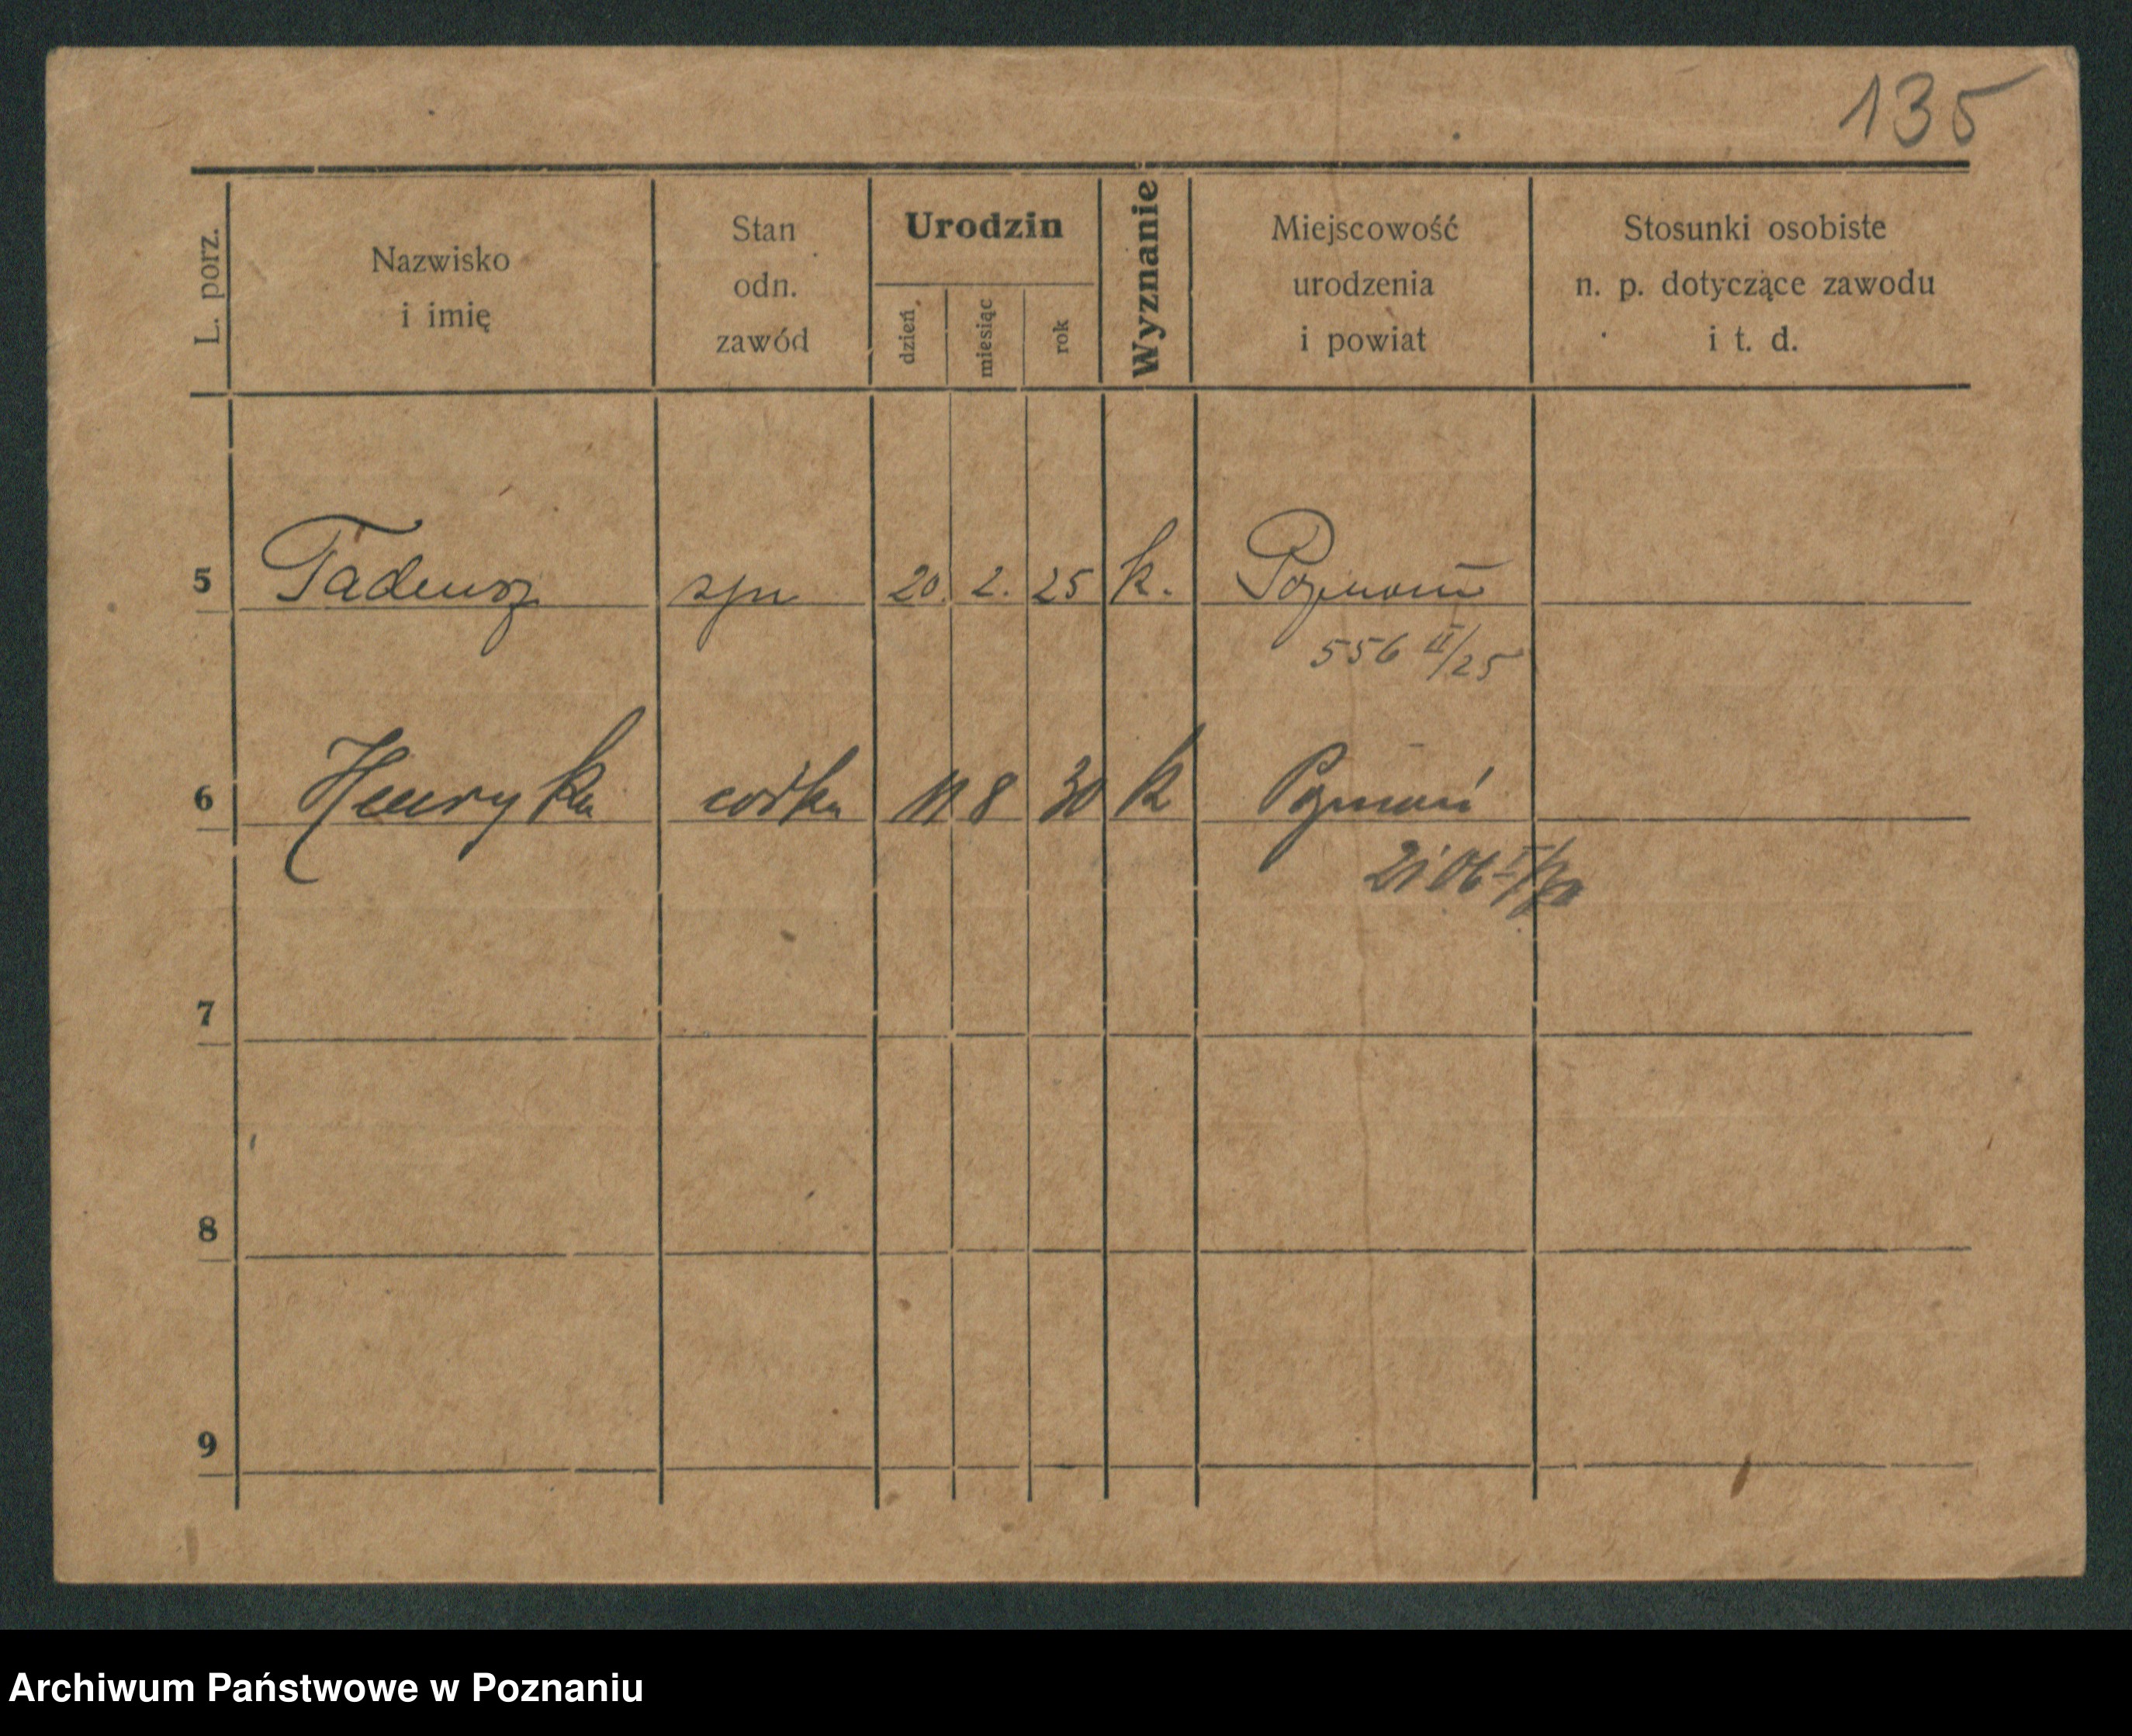 135
L. porz.
Nazwisko
i imię
Stan
odn.
zawód
Urodzin
dzień
miesiąc
rok
Wyznanie
Miejscowość
urodzenia
i powiat
Stosunki osobiste
n. p. dotyczące zawodu
i t. d.
5 Tadeusz syn 20. 2. 25 k. Poznań
556 II/25
6 Henryka córka 11 8 30 k Poznań
7
8
9
Archiwum Państwowe w Poznaniu